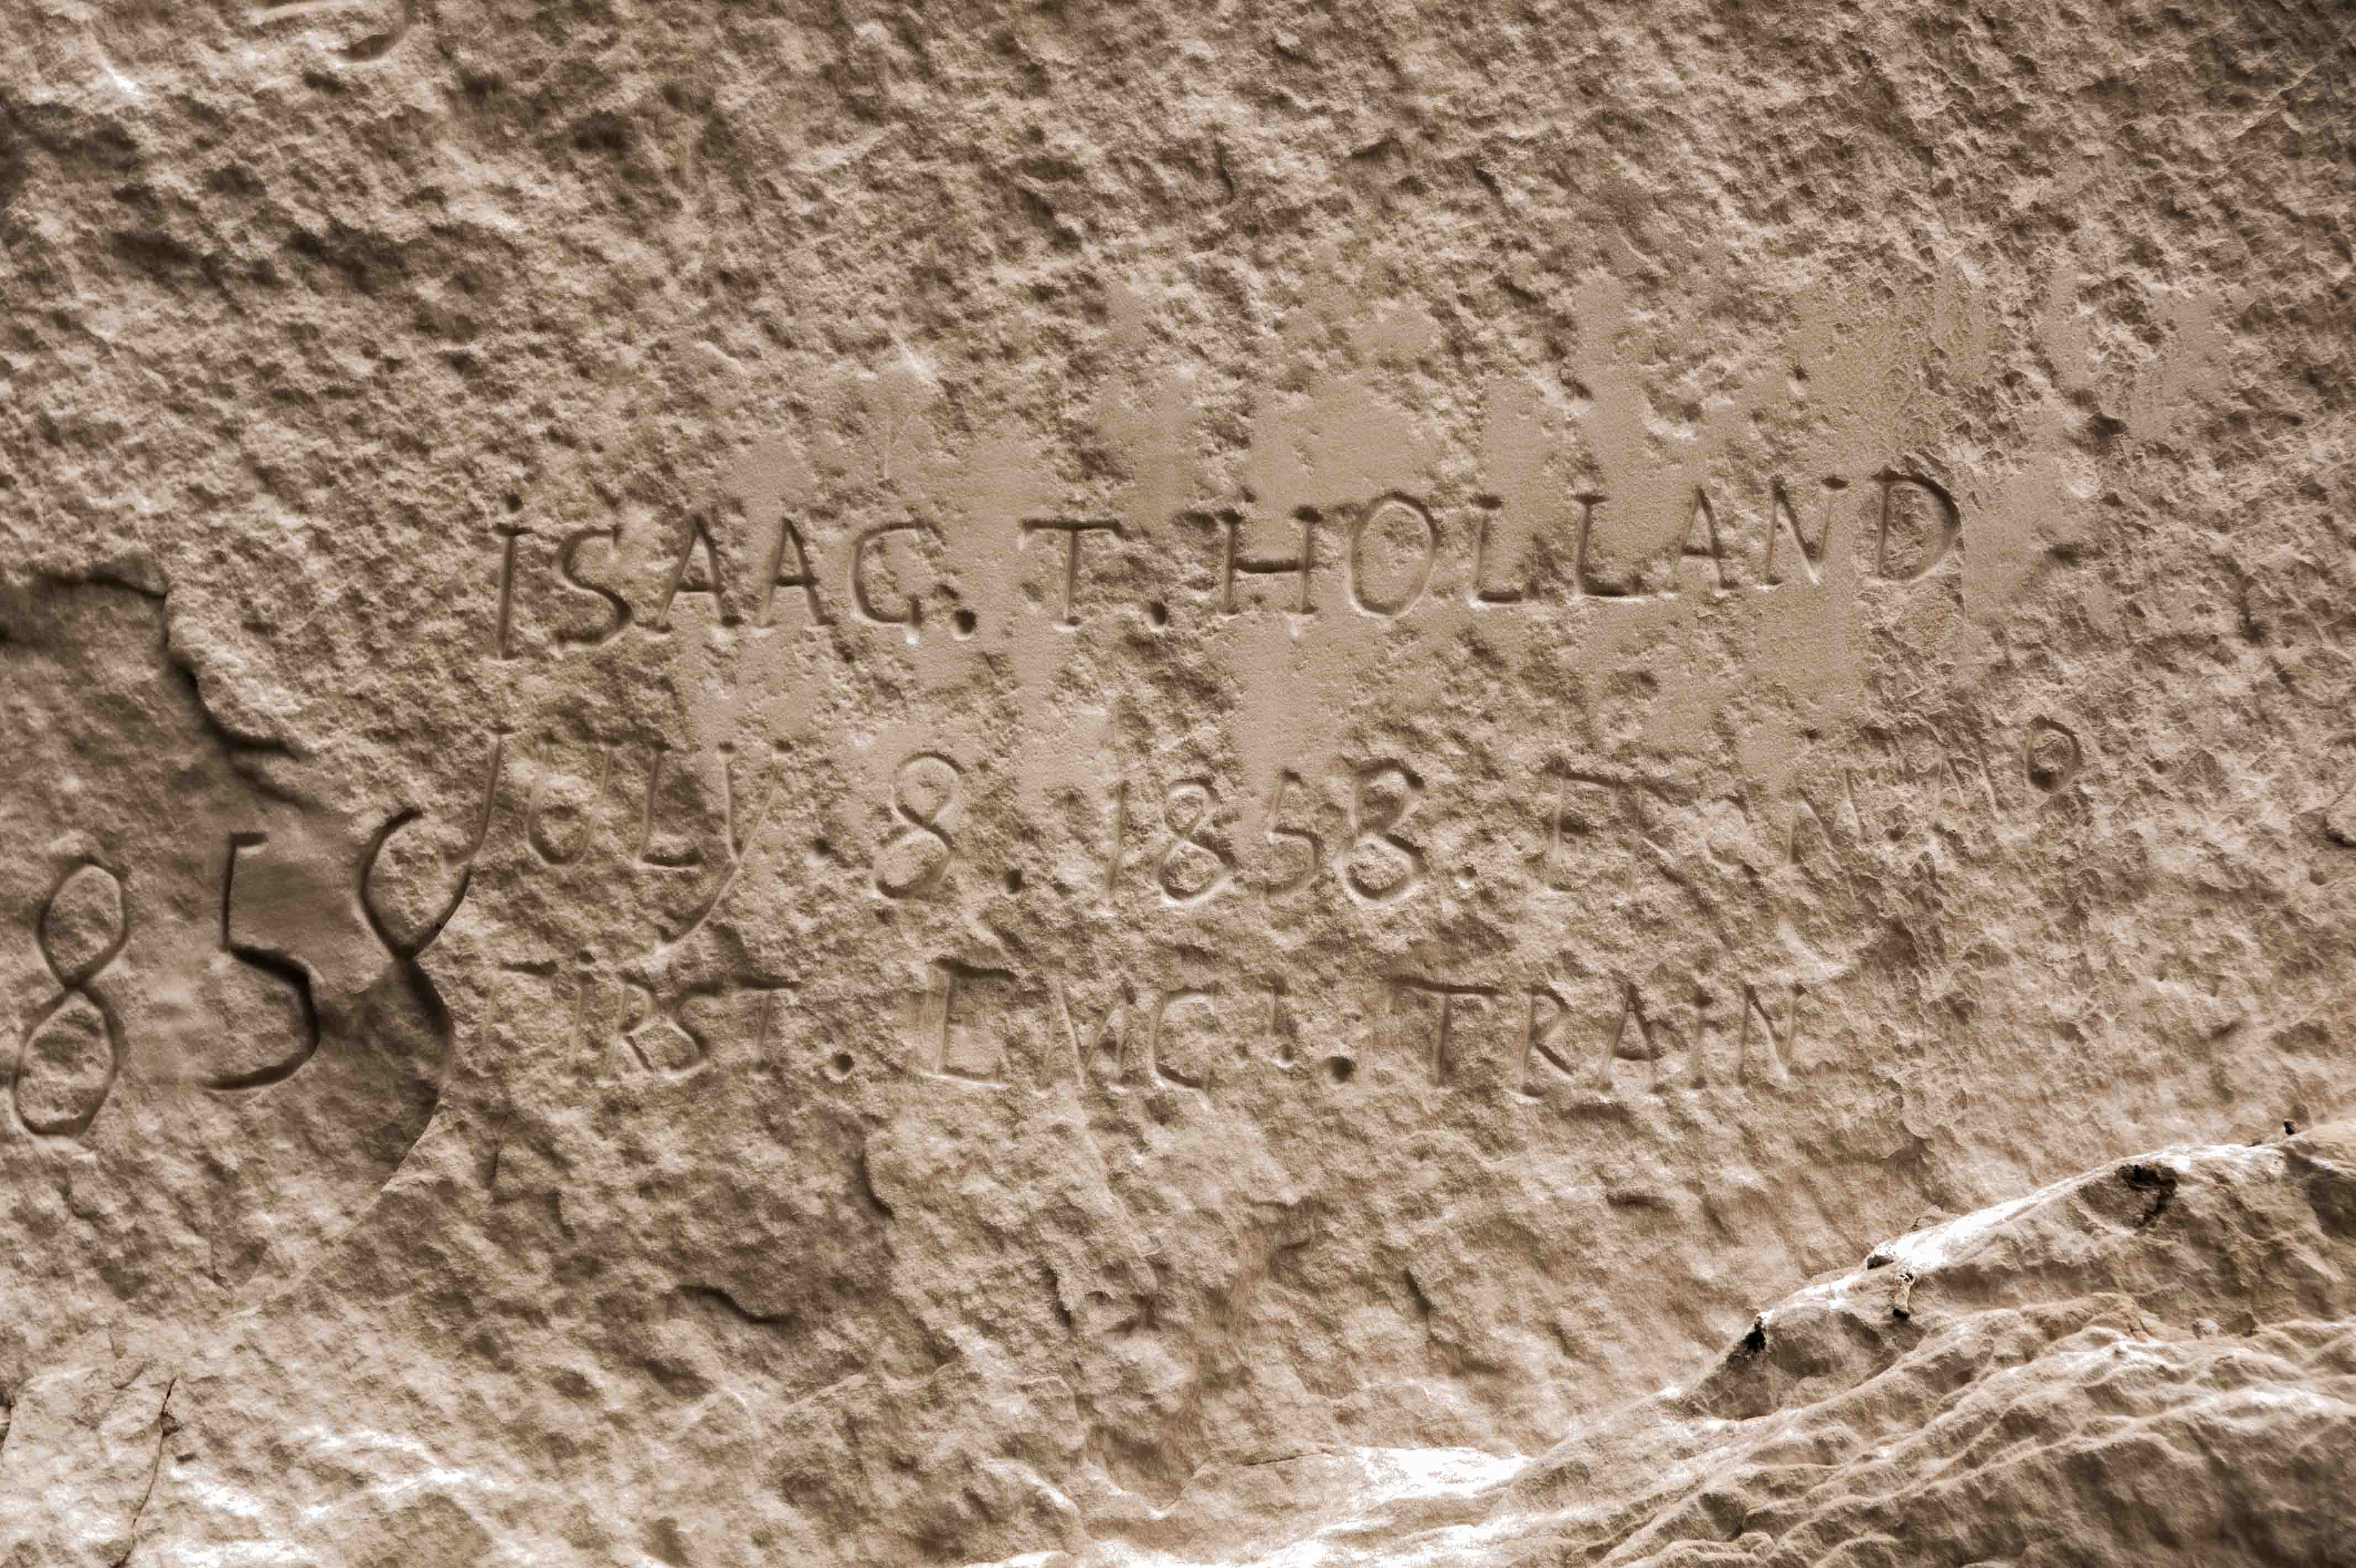 ISAAC. T. HOLLAND
JULY 8. 1858. FROM MO
858
FIRST. EMG'. TRAIN